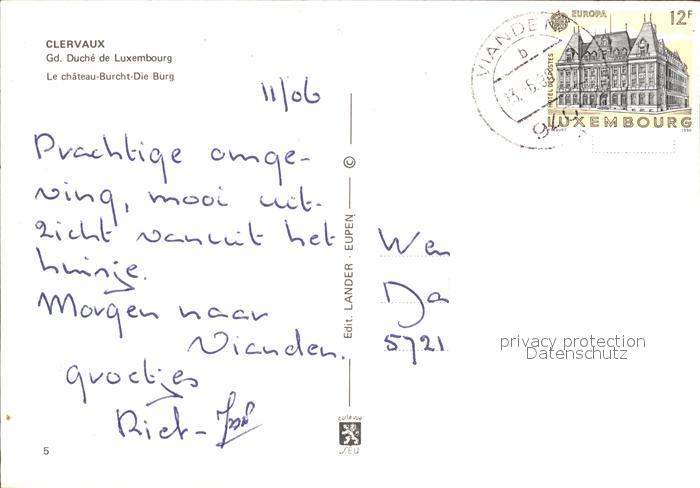 CLERVAUX
Gd. Duché de Luxembourg
Le château-Burcht-Die Burg
11/06
Prachtige omge-
ving, mooi uit-
zicht vanuit het
huisje.
Morgen naar
Vianden.
groetjes
Riet-
5
Edit. LANDER - EUPEN ©
VIANDEN
b
EUROPA
12F
HOTEL DES POSTES
LUXEMBOURG
1990
Wen
Da
5721
privacy protection
Datenschutz